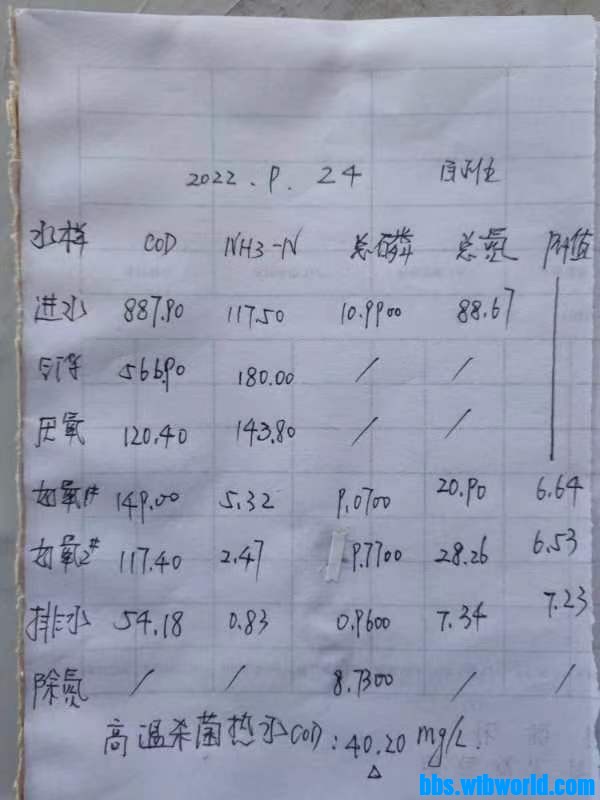 2022.9.24 白班
水样 COD NH3-N 总磷 总氮 PH值
进水 887.90 117.50 10.9900 88.67
566.90 180.00 / /
厌氧 120.40 143.80 / /
好氧1# 149.00 5.32 9.0700 20.90 6.64
好氧2# 117.40 2.47 9.7700 28.26 6.53
排水 54.18 0.83 0.9600 7.34 7.23
除氮 / / 8.7300 / /
高温杀菌热水COD:40.20 mg/L.
bbs.wibworld.com